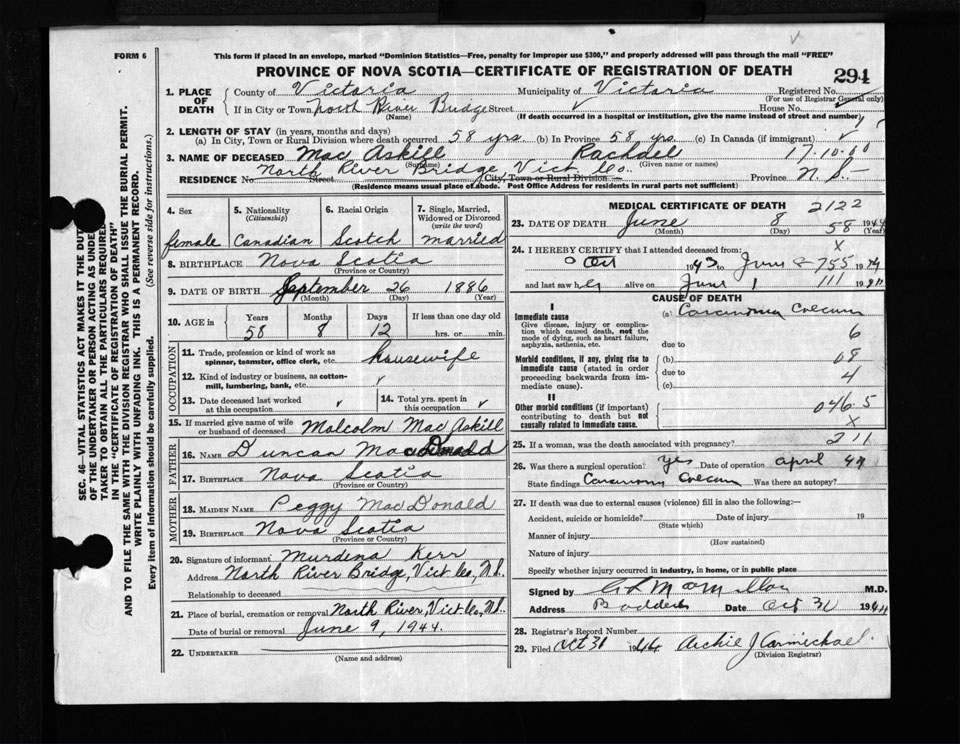 FORM 6
This form if placed in an envelope, marked "Dominion Statistics—Free, penalty for improper use $300," and properly addressed will pass through the mail "FREE"
PROVINCE OF NOVA SCOTIA—CERTIFICATE OF REGISTRATION OF DEATH 294
1. PLACE OF DEATH County of Victoria Municipality of Victoria Registered No.
(For use of Registrar General only)
If in City or Town North River Bridge Street House No.
(Name) (If death occurred in a hospital or institution, give the name instead of street and number)
2. LENGTH OF STAY (in years, months and days)
(a) In City, Town or Rural Division where death occurred 58 yrs. (b) In Province 58 yrs. (c) In Canada (if immigrant)
3. NAME OF DECEASED Mac Askill Rachael 17.10.60
(Surname) (Given name or names)
RESIDENCE No. Street North River Bridge, Vict Co. City, Town or Rural Division Province N.S.
(Residence means usual place of abode. Post Office Address for residents in rural parts not sufficient)
4. Sex 5. Nationality (Citizenship) 6. Racial Origin 7. Single, Married, Widowed or Divorced (write the word)
female Canadian Scotch married
8. BIRTHPLACE Nova Scotia
(Province or Country)
9. DATE OF BIRTH September 26 1886
(Month) (Day) (Year)
10. AGE in Years Months Days If less than one day old
58 8 12 hrs. or min.
OCCUPATION
11. Trade, profession or kind of work as spinner, teamster, office clerk, etc. housewife
12. Kind of industry or business, as cotton-mill, lumbering, bank, etc.
13. Date deceased last worked at this occupation 14. Total yrs. spent in this occupation
15. If married give name of wife or husband of deceased Malcolm Mac Askill
FATHER
16. Name Duncan MacDonald
17. Birthplace Nova Scotia
(Province or Country)
MOTHER
18. Maiden Name Peggy MacDonald
19. Birthplace Nova Scotia
(Province or Country)
20. Signature of informant Murdena Kerr
Address North River Bridge, Vict Co, N.S.
Relationship to deceased
21. Place of burial, cremation or removal North River, Vict Co, N.S.
Date of burial or removal June 9, 1944.
22. UNDERTAKER
(Name and address)
MEDICAL CERTIFICATE OF DEATH 2122
23. DATE OF DEATH June 8 1944
(Month) (Day) (Year)
58
24. I HEREBY CERTIFY that I attended deceased from: X
Oct 1943 to June 8 755 1944
and last saw her alive on June 1 111 1944
CAUSE OF DEATH
I
Immediate cause (a) Carcinoma Coecum
Give disease, injury or complication which caused death, not the mode of dying, such as heart failure, asphyxia, asthenia, etc. due to 6
Morbid conditions, if any, giving rise to immediate cause (stated in order proceeding backwards from immediate cause). (b) 68
due to 4
(c)
II
Other morbid conditions (if important) contributing to death but not causally related to immediate cause. 046.5
X
25. If a woman, was the death associated with pregnancy? 211
26. Was there a surgical operation? yes Date of operation april 44
State findings Carcinoma Coecum Was there an autopsy?
27. If death was due to external causes (violence) fill in also the following:—
Accident, suicide or homicide? Date of injury 19
(State which)
Manner of injury
(How sustained)
Nature of injury
Specify whether injury occurred in industry, in home, or in public place
Signed by M.D.
Address Baddeck Date Oct 31 1944
28. Registrar's Record Number
29. Filed Oct 31 1944 Archie J Carmichael.
(Division Registrar)
SEC. 46—VITAL STATISTICS ACT MAKES IT THE DUTY
OF THE UNDERTAKER OR PERSON ACTING AS UNDER-
TAKER TO OBTAIN ALL THE PARTICULARS REQUIRED
IN THE "CERTIFICATE OF REGISTRATION OF DEATH"
AND TO FILE THE SAME WITH THE DIVISION REGISTRAR WHO SHALL ISSUE THE BURIAL PERMIT.
WRITE PLAINLY WITH UNFADING INK. THIS IS A PERMANENT RECORD.
Every item of information should be carefully supplied. (See reverse side for instructions.)